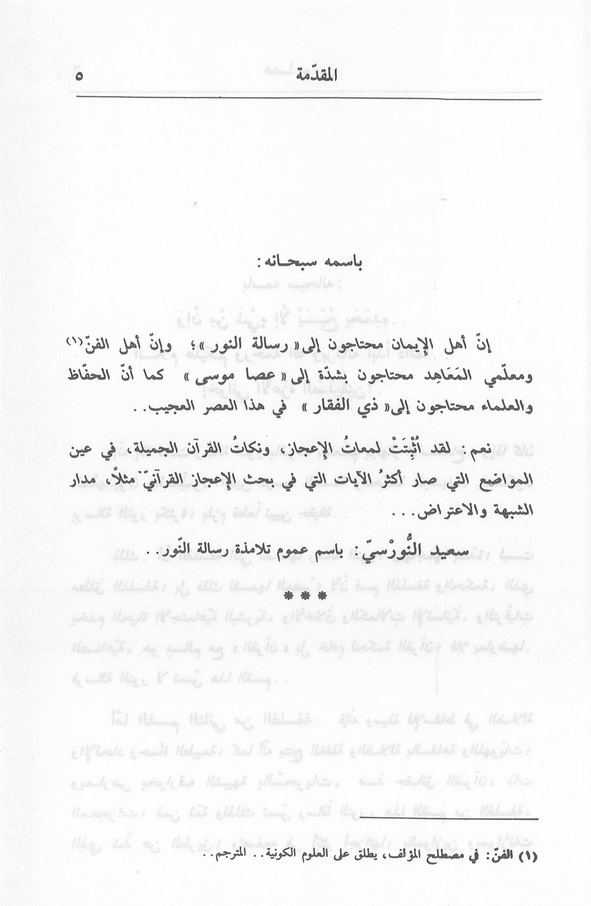 المقدّمة ٥
باسمه سبحـانه :
إنّ أهل الإيمان محتاجون إلى « رسالة النور » ؛ وإنّ أهل الفنّ(١)
ومعلّمي المَعَاهِد محتاجون بشدّة إلى « عصا موسى » كما أنّ الحفّاظ
والعلماء محتاجون إلى « ذي الفقار » في هذا العصر العجيب . .
نعم : لقد أُثْبِتَتْ لمعاتُ الإعجاز ، ونكاتُ القرآن الجميلة ، في عين
المواضع التي صار أكثرُ الآيات التي في بحث الإعجاز القرآنيّ مثلاً ، مدار
الشبهة والاعتراض . . .
سعيد النُّورْسيّ : باسم عموم تلامذة رسالة النّور . .
* * *
(١) الفنّ : في مصطلح المؤلف ، يطلق على العلوم الكونية . . المترجم . .